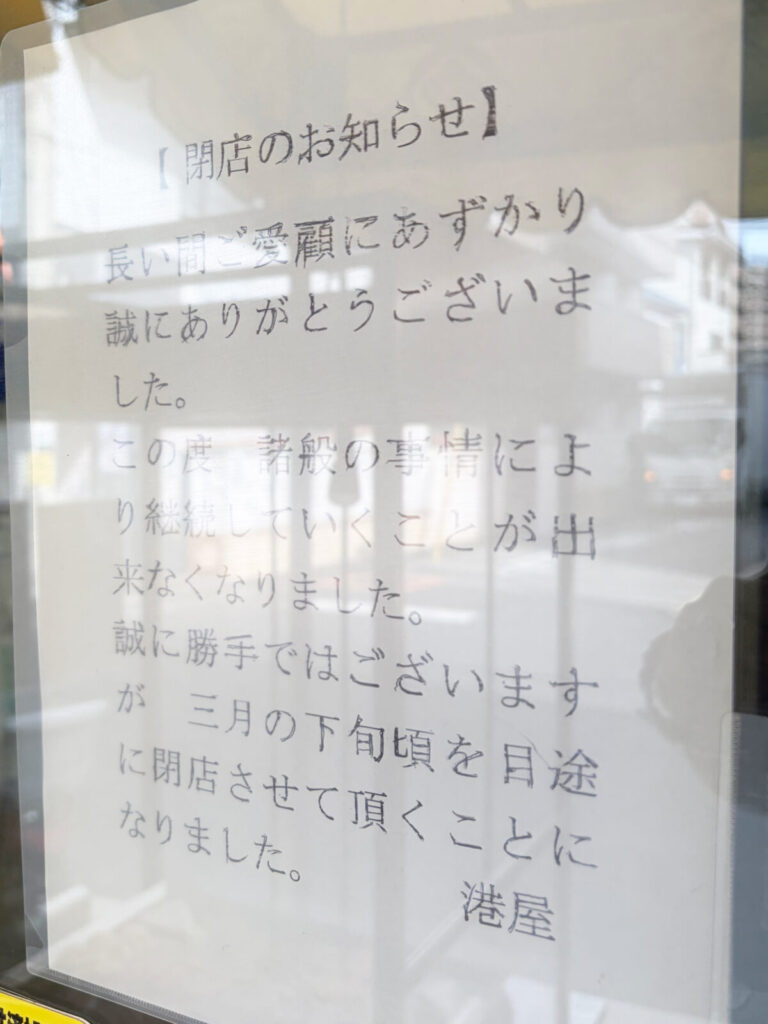 【閉店のお知らせ】
長い間ご愛顧にあずかり
誠にありがとうございま
した。
この度　諸般の事情によ
り継続していくことが出
来なくなりました。
誠に勝手ではございます
が　三月の下旬頃を目途
に閉店させて頂くことに
なりました。
港屋